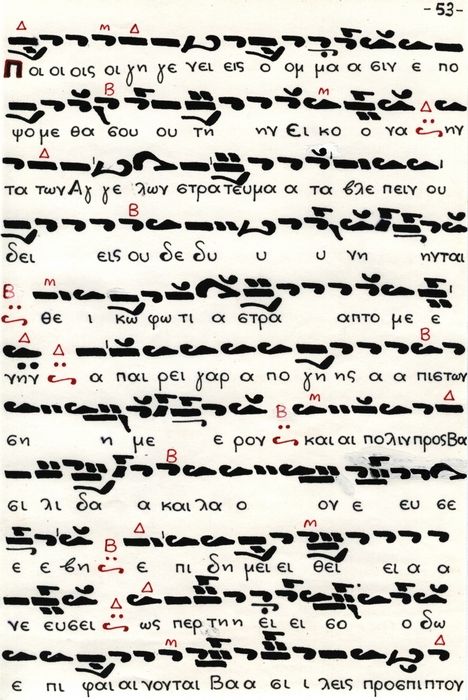 - 53 -
Δ m Δ
Ποι οι οις οι γη γε νει εις ο ομ μα α σιν ε πο
B m Δ
ψο με θα σου ου τη ην Ει κο ο να ην
Δ
τα των Αγ γε λων στρατευμα α τα βλε πειν ου
B
δει εις ου δε δυ υ υ νη ηνται
B m
θε ι κω φω τι α στρα απτο με ε
Δ Δ B
νην α παι ρει γαρ α πο γη ης α α πιστων
B m Δ
ση η με ε ρον και αι πολιν προς Βα
B
σι λι δα α και λα ο ον ε ευ σε
B Δ m
ε ε βη ε πι δη μει ει θει ει α α
Δ Δ
νε ευσει ως περ τη η ει ει σο ο δω
m Δ
ε πι φαι αι νονται Βα α σι ι λεις προσπιπτου